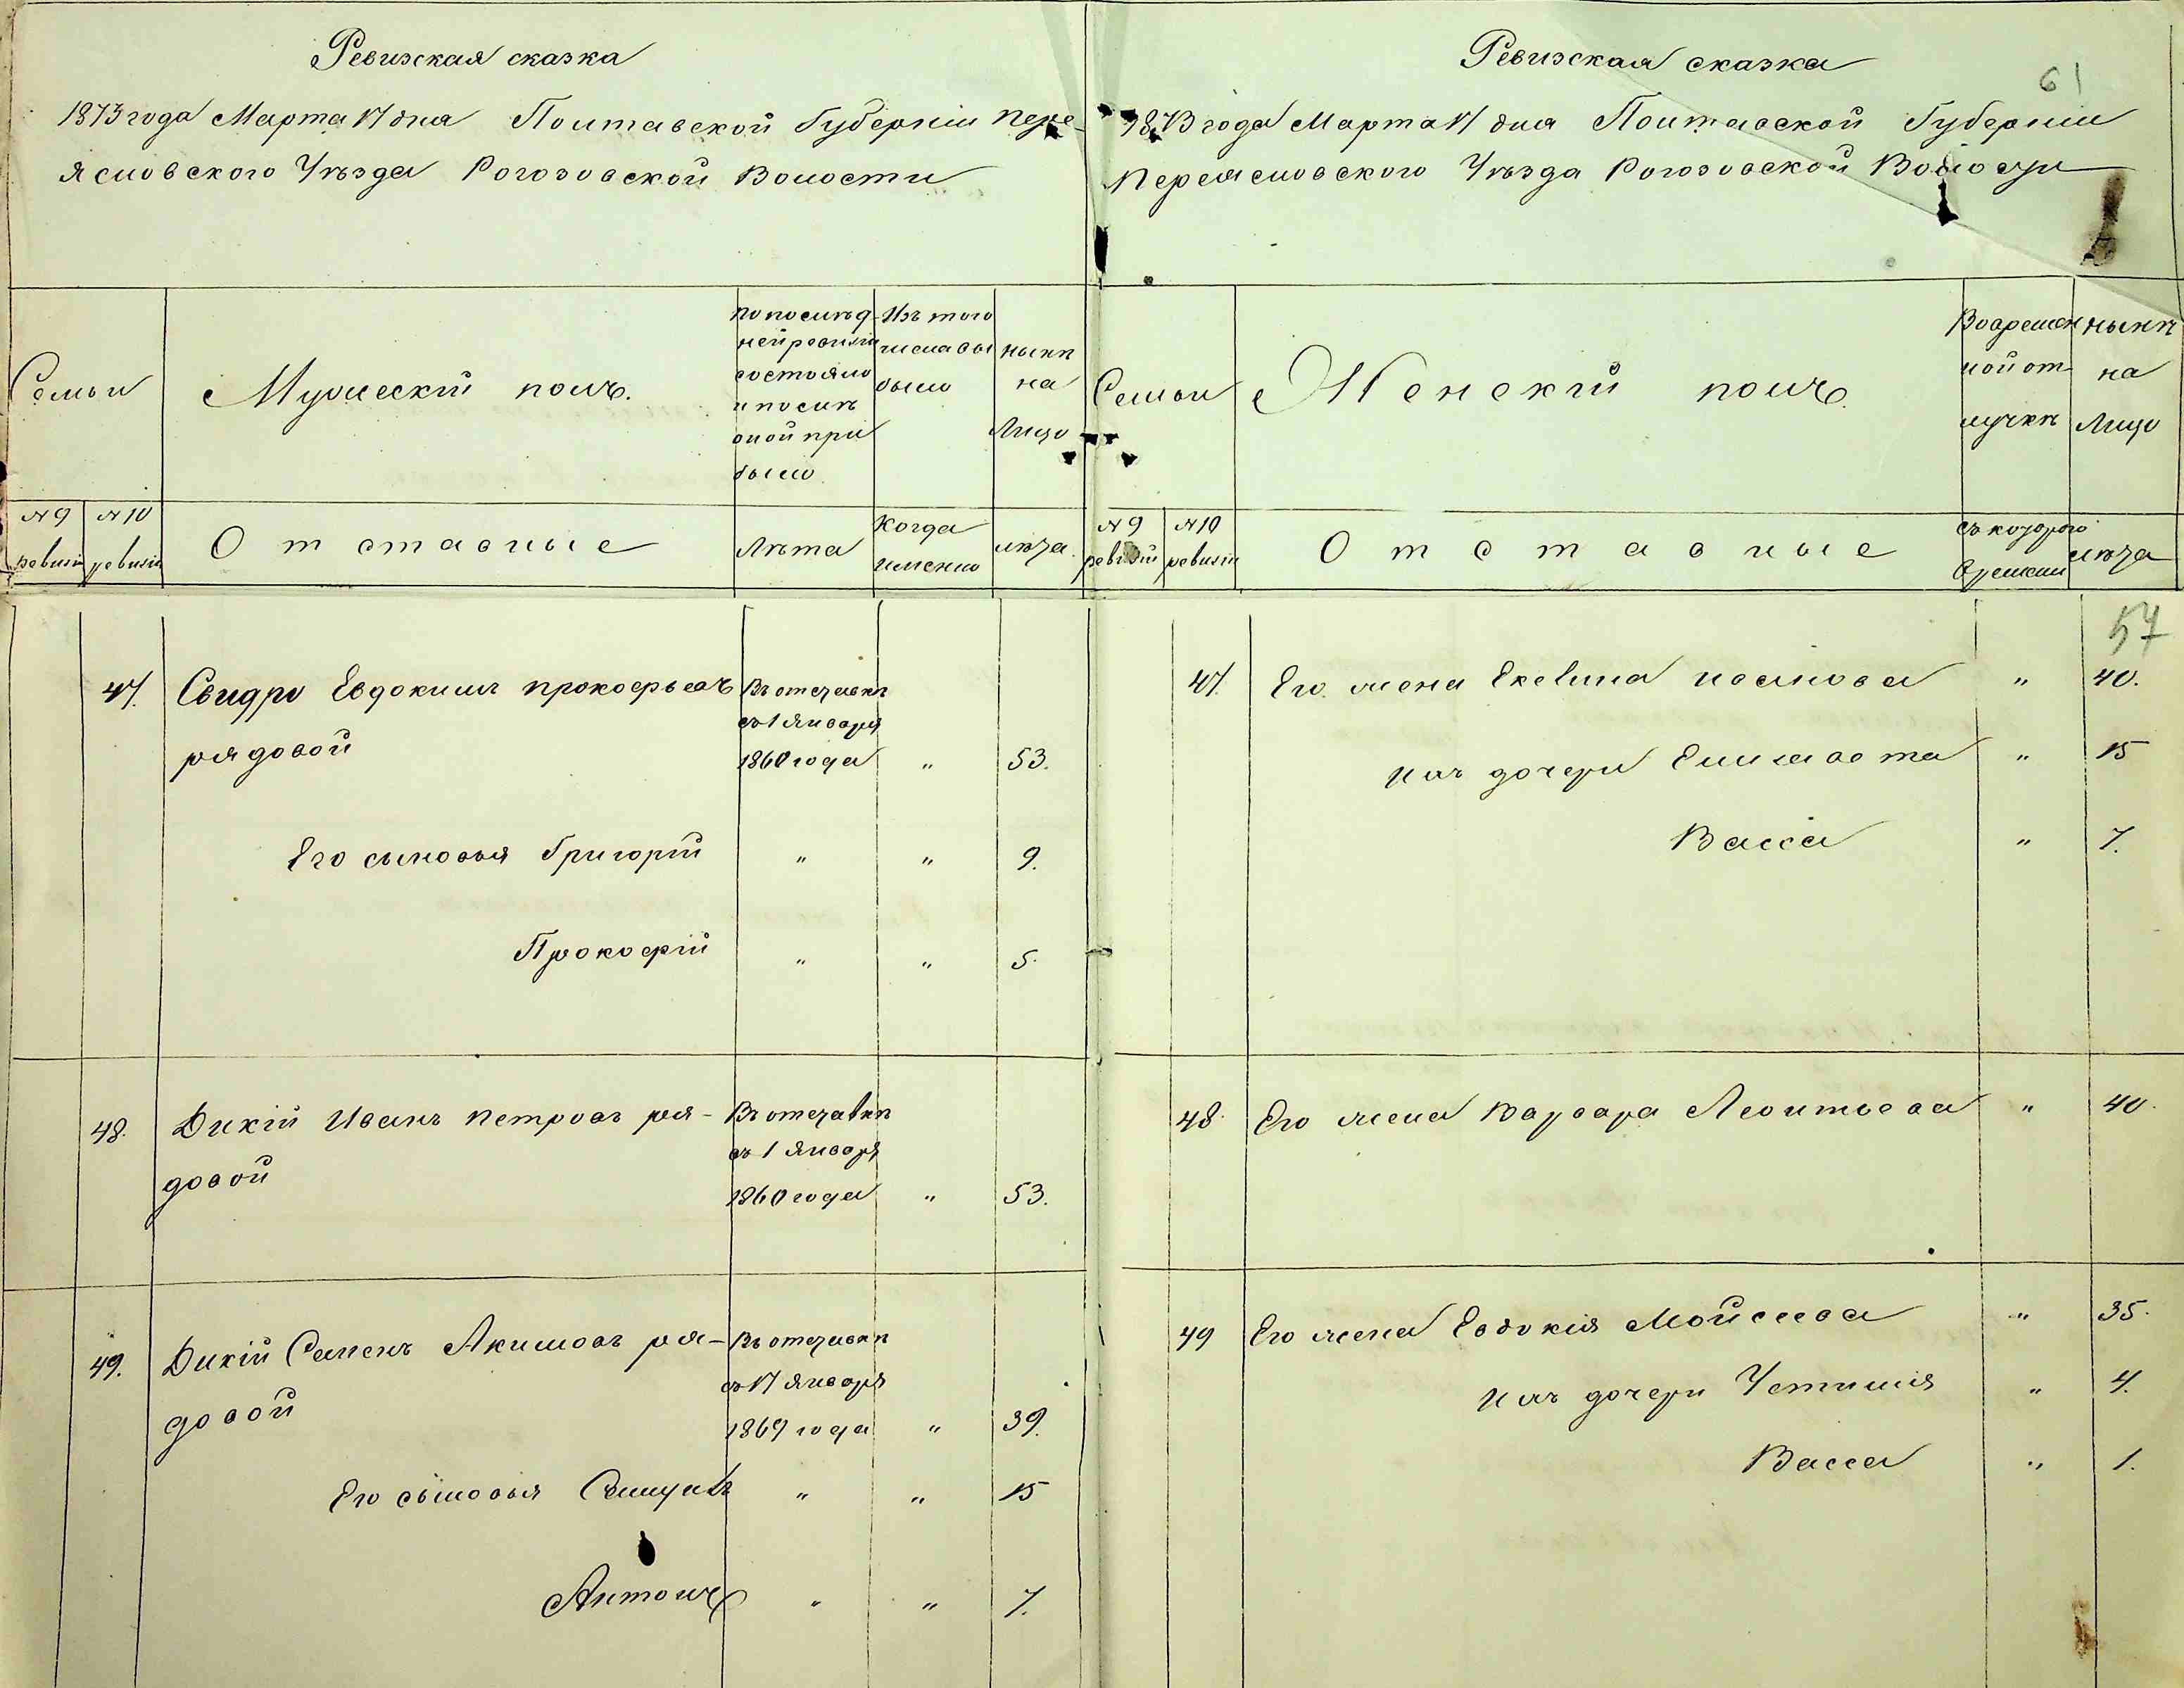 Ревизская сказка
1873 года Марта 17 дня Полтавской Губерніи Пере-
яславского Уѣзда Рогозовской Волости
Семьи
Мужескій полъ.
По послѣд-
ней ревизіи
состояло
и послѣ
оной при
было
Изъ того
числа вы
было
нынѣ
на
Лицо
№ 9
ревизіи
№ 10
ревизіи
Отставные
Лѣта
Когда
именно
лѣта.
47.
Свидро Евдокимъ Прокофьевъ
рядовой
Въ отставкѣ
съ 1 Января
1860 года " 53.
Его сыновья Григорій " " 9.
Прокофій " " 5.
48.
Дикій Иванъ Петровъ ря-
довой
Въ отставкѣ
съ 1 Января
1860 года " 53.
49.
Дикій Семенъ Акимовъ ря-
довой
Въ отставкѣ
съ 17 Января
1869 года " 39.
Его сыновья " " 15
Антонъ " " 7.
Ревизская сказка
61
1873 года Марта 17 дня Полтавской Губерніи
Переяславского Уѣзда Рогозовской Волости
Семьи
Женскій полъ.
Во времен
ной от
лучкѣ
нынѣ
на
Лицо
№ 9
ревизіи
№ 10
ревизіи
Отставные
съ которого
времени
лѣта
57
47. Его жена Иванова " 40.
Ихъ дочери Елисавета " 15
Васса " 7.
48. Его жена Варвара Леонтьева " 40.
49 Его жена Евдокія Мойсеева " 35.
Ихъ дочери Устинія " 4.
Васса " 1.